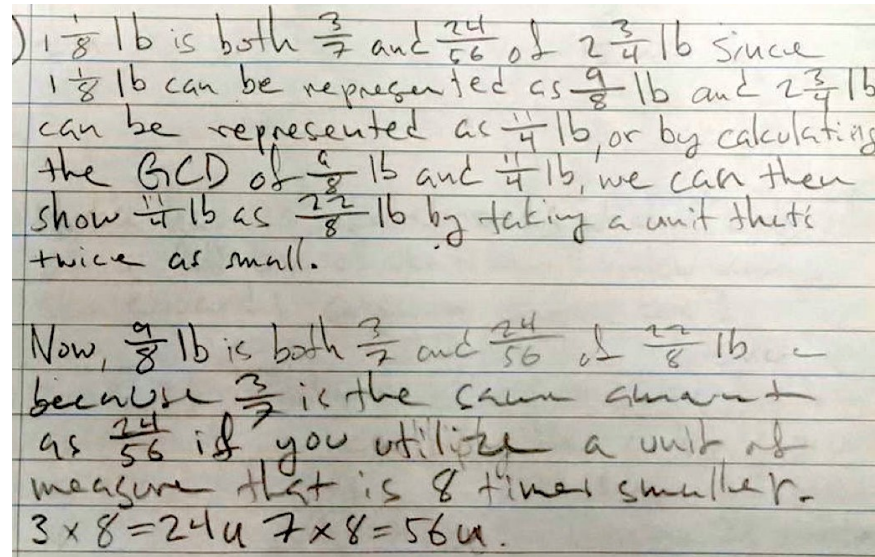 ) 1 1/8 lb is both 3/7 and 24/56 of 2 3/4 lb since
1 1/8 lb can be represented as 9/8 lb and 2 3/4 lb
can be represented as 11/4 lb, or by calculating
the GCD of 9/8 lb and 11/4 lb, we can then
show 11/4 lb as 22/8 lb by taking a unit that's
twice as small.
Now, 9/8 lb is both 3/7 and 24/56 of 22/8 lb
because 3/7 is the same amount
as 24/56 if you utilize a unit of
measure that is 8 times smaller.
3 x 8 = 24u 7 x 8 = 56u.